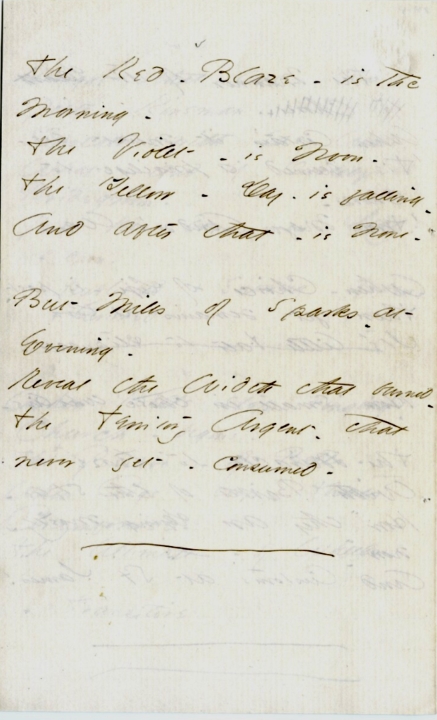 The Red - Blaze - is the
Morning -
The Violet - is Noon -
The Yellow - Day - is falling -
And after that - is None -
But Miles of Sparks - at -
Evening -
Reveal the Width that burned -
The Territory Argent - that
never yet - consumed -